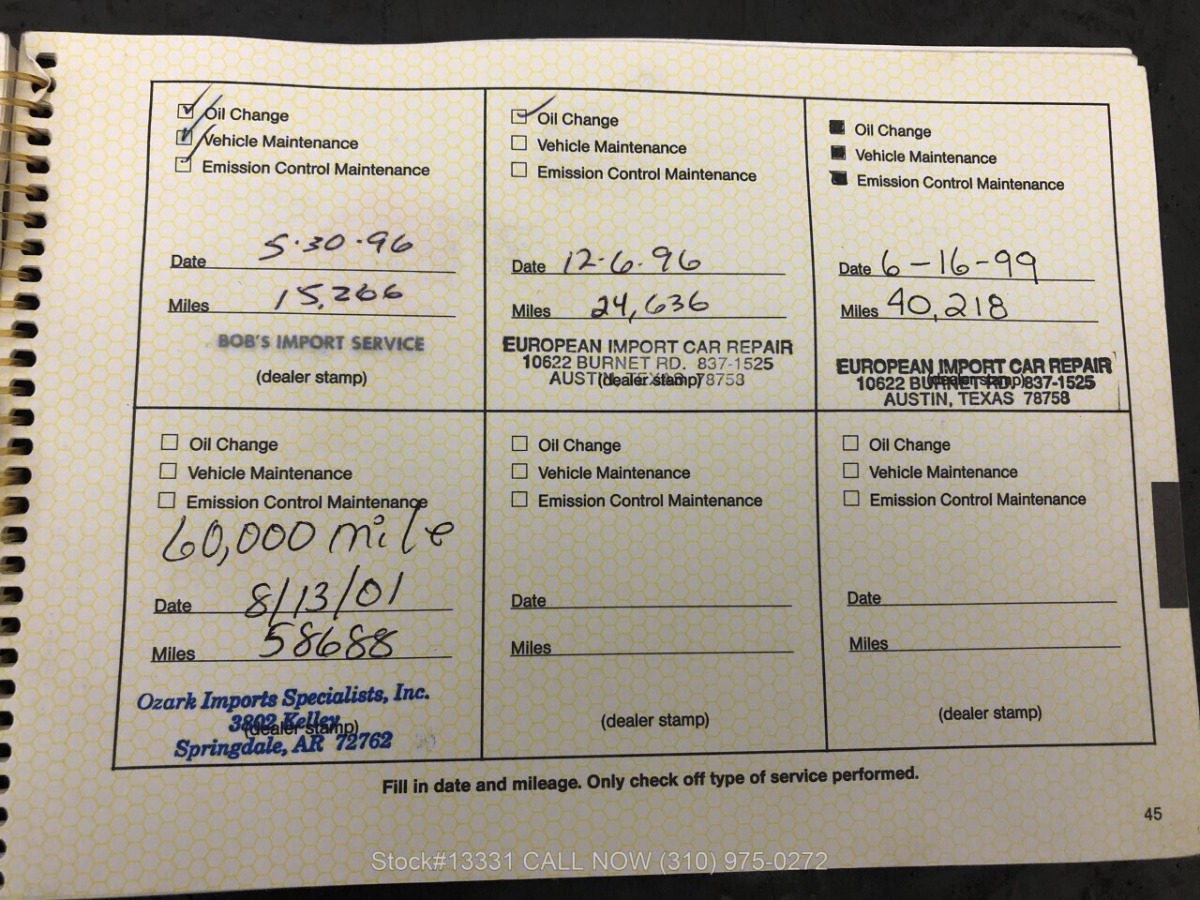 Oil Change
Vehicle Maintenance
Emission Control Maintenance
Date 5·30·96
Miles 15,266
BOB'S IMPORT SERVICE
(dealer stamp)
Oil Change
Vehicle Maintenance
Emission Control Maintenance
Date 12·6·96
Miles 24,636
EUROPEAN IMPORT CAR REPAIR
10622 BURNET RD. 837-1525
AUSTIN, TEXAS 78758
(dealer stamp)
Oil Change
Vehicle Maintenance
Emission Control Maintenance
Date 6-16-99
Miles 40,218
EUROPEAN IMPORT CAR REPAIR
10622 BURNET RD. 837-1525
(dealer stamp)
AUSTIN, TEXAS 78758
Oil Change
Vehicle Maintenance
Emission Control Maintenance
60,000 mile
Date 8/13/01
Miles 58688
Ozark Imports Specialists, Inc.
3802 Kelley
(dealer stamp)
Springdale, AR 72762
Oil Change
Vehicle Maintenance
Emission Control Maintenance
Date
Miles
(dealer stamp)
Oil Change
Vehicle Maintenance
Emission Control Maintenance
Date
Miles
(dealer stamp)
Fill in date and mileage. Only check off type of service performed.
45
Stock#13331 CALL NOW (310) 975-0272